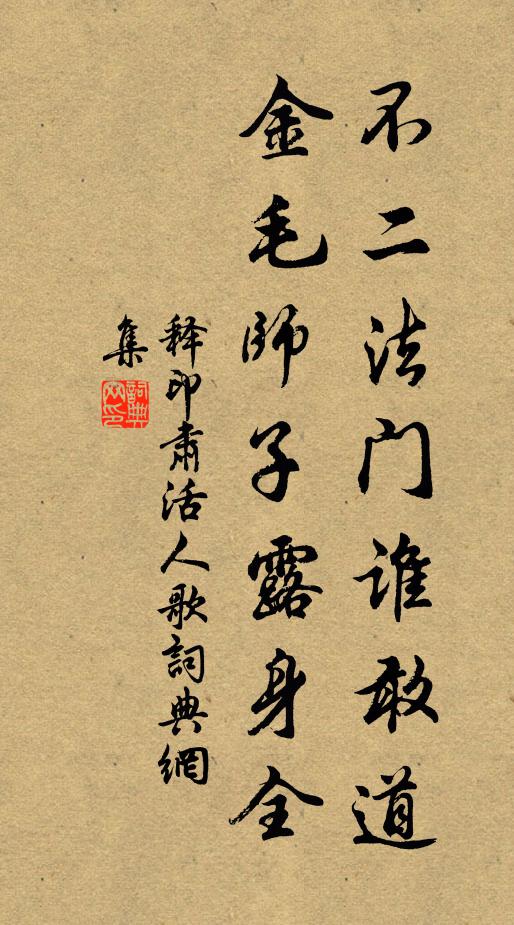 不二法门谁敢道
金毛師子露身全
释印肃活人歌詞典網
集
詞典网印